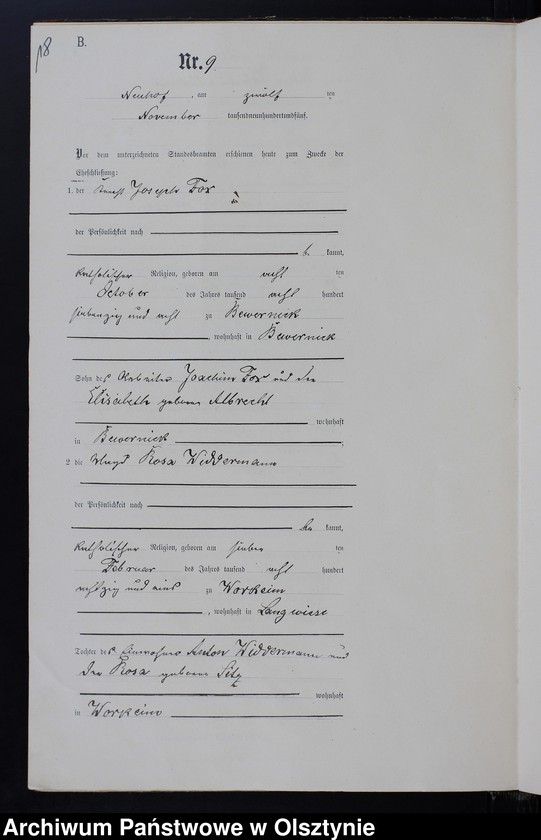 18
B.
Nr. 9
Neuhof, am zwölf ten
November tausendneunhundertundfünf.
Vor dem unterzeichneten Standesbeamten erschienen heute zum Zwecke der
Eheschließung:
1. der Knecht Joseph Fox
der Persönlichkeit nach
be kannt,
katholischer Religion, geboren am acht ten
October des Jahres tausend acht hundert
siebenzig und acht zu Bewernick
, wohnhaft in Bewernick
Sohn des Arbeiters Joachim Fox und der
Elisabeth geborene Albrecht
wohnhaft
in Bewernick
2. die Magd Rosa Widdermann
der Persönlichkeit nach
be kannt,
katholischer Religion, geboren am sieben ten
Februar des Jahres tausend acht hundert
achtzig und eins zu Workeim
, wohnhaft in Langwiese
Tochter des Einwohners Anton Widdermann und
der Rosa geborene
wohnhaft
in Workeim
Archiwum Państwowe w Olsztynie